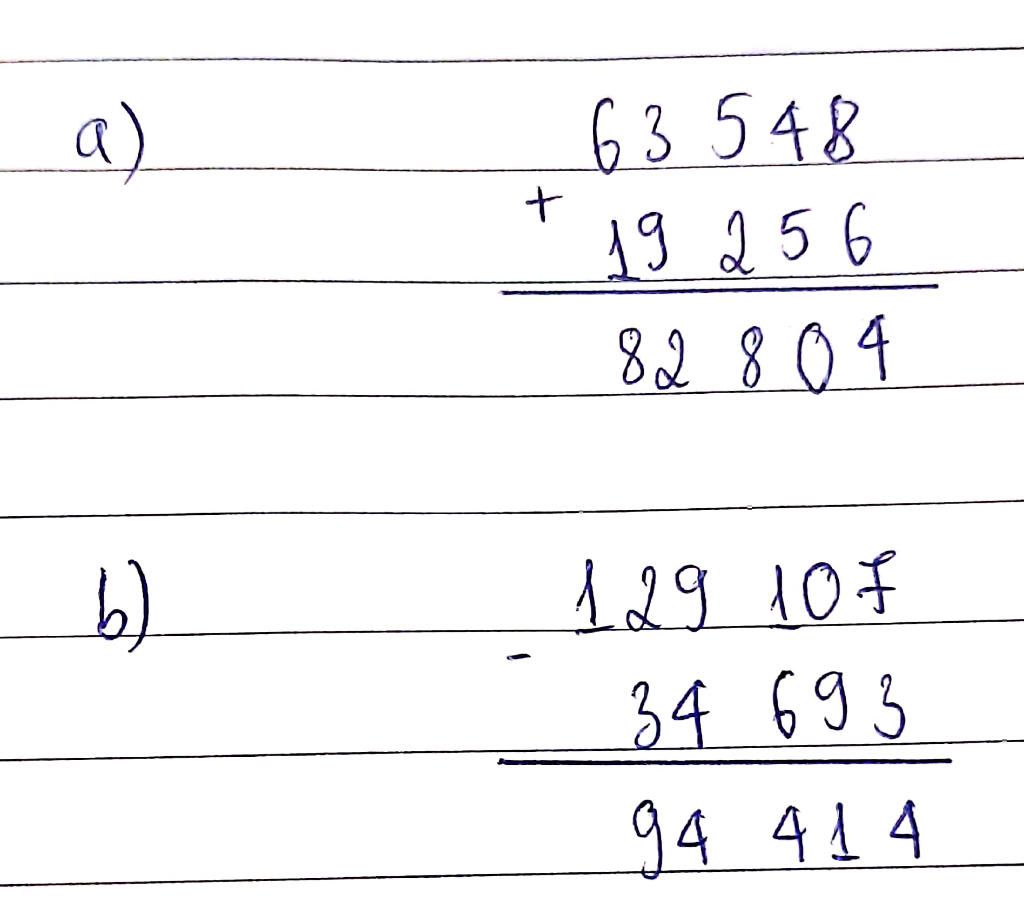 a) 63 548
+
19 256
82 804
b) 129 107
-
34 693
94 414